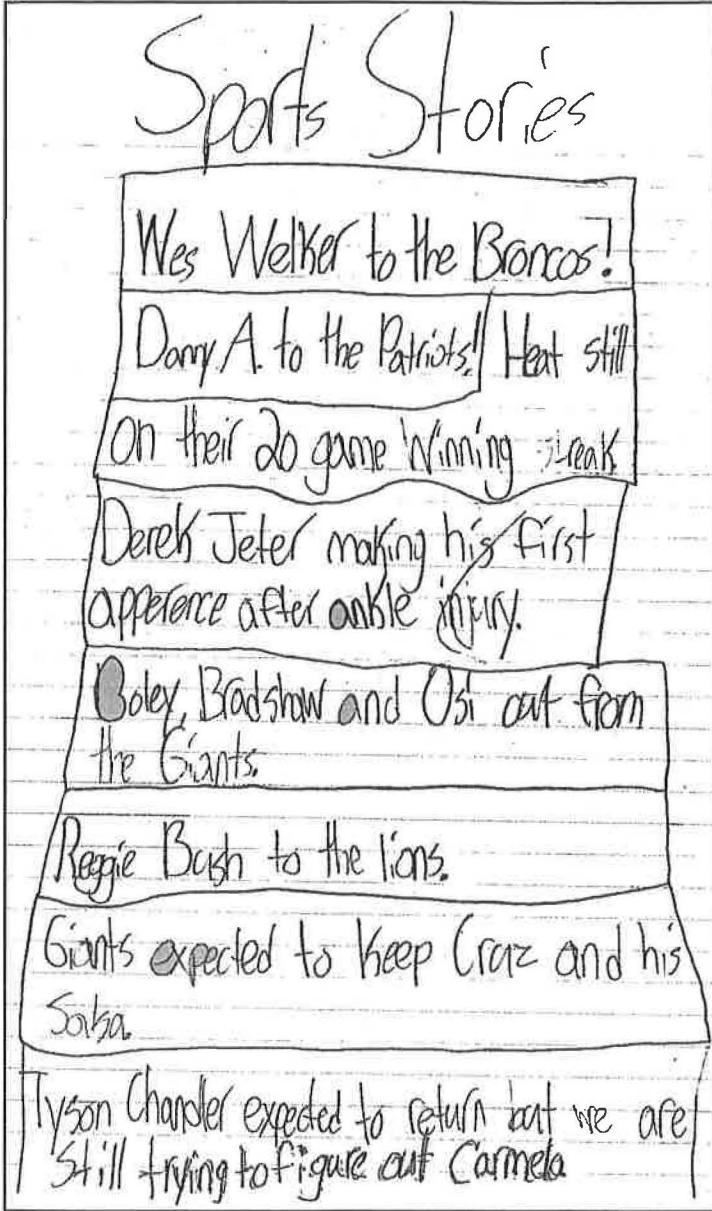 Sports Stories
Wes Welker to the Broncos!
Danny A. to the Patriots!! Heat still
on their 20 game Winning streak
Derek Jeter making his first
apperence after ankle injury.
Boley, Bradshaw and Osi out from
the Giants.
Reggie Bush to the lions.
Giants expected to Keep Cruz and his
Salsa.
Tyson Chandler expected to return but we are
Still trying to figure out Carmelo